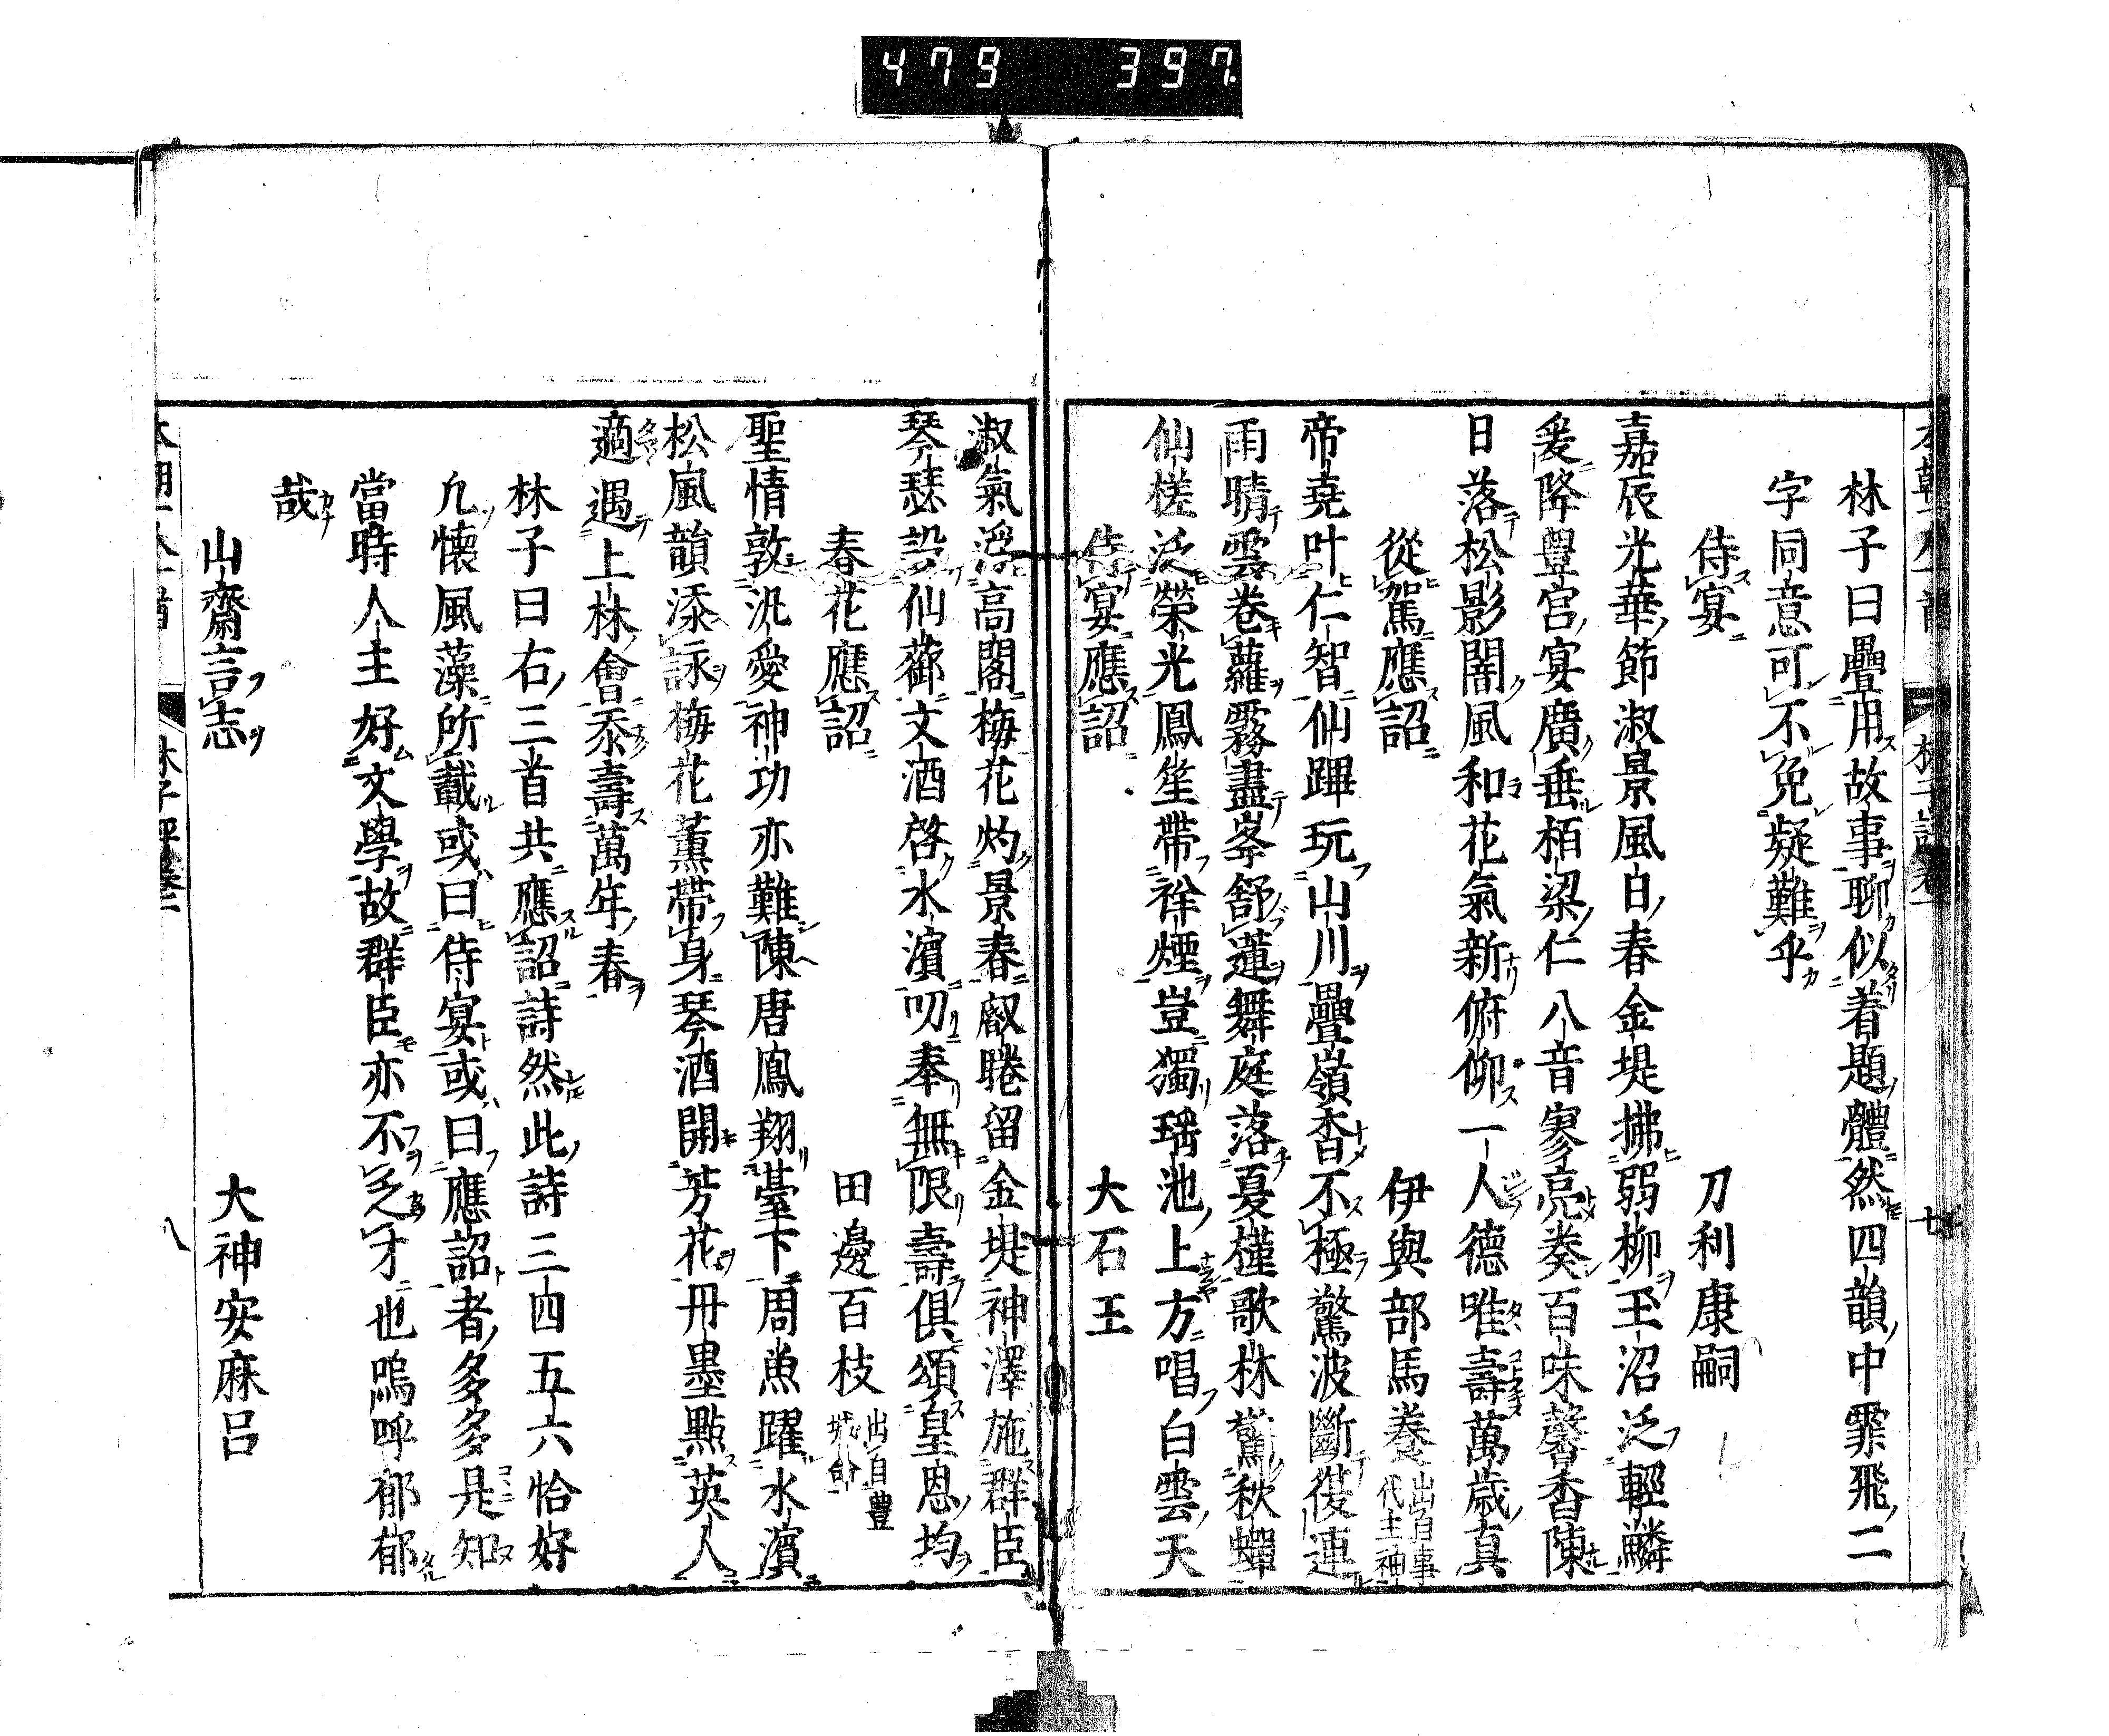 479 397.
林子曰疊用故事聊似着題體然四韻中霏飛二
字同意可不免疑難乎
侍宴 刀利康嗣
嘉辰光華節淑景風日春金堤拂弱柳玉沼泛輕鱗
爰降豐宮宴廣垂栢梁仁八音寥亮奏百味馨香陳
日落松影闇風和花氣新俯仰一人德唯壽萬歲真
從駕應詔 伊與部馬養 出自事代主神
帝堯叶仁智仙蹕玩山川疊嶺杳不極驚波斷復連
雨晴雲卷蘿霧盡峯舒蓮舞庭落夏槿歌林驚秋蟬
仙槎泛榮光鳳笙帶祥煙豈獨瑤池上方唱白雲天
侍宴應詔 大石王
淑氣浮高閣梅花灼景春叡睠留金堤神澤施群臣
琴瑟設仙蘌文酒啓水濱叨奉無限壽俱頌皇恩均
春花應詔 田邊百枝 出自豊城命
聖情敦汎愛神功亦難陳唐鳳翔臺下周魚躍水濱
松風韻添詠梅花薰帶身琴酒開芳花丹墨點英人
適遇上林會忝壽萬年春
林子曰右三首共應詔詩然此詩三四五六恰好
凢懷風藻所載或曰侍宴或曰應詔者多多是知
當時人主好文學故群臣亦不乏才也嗚呼郁郁
哉
山齋言志 大神安麻呂
八